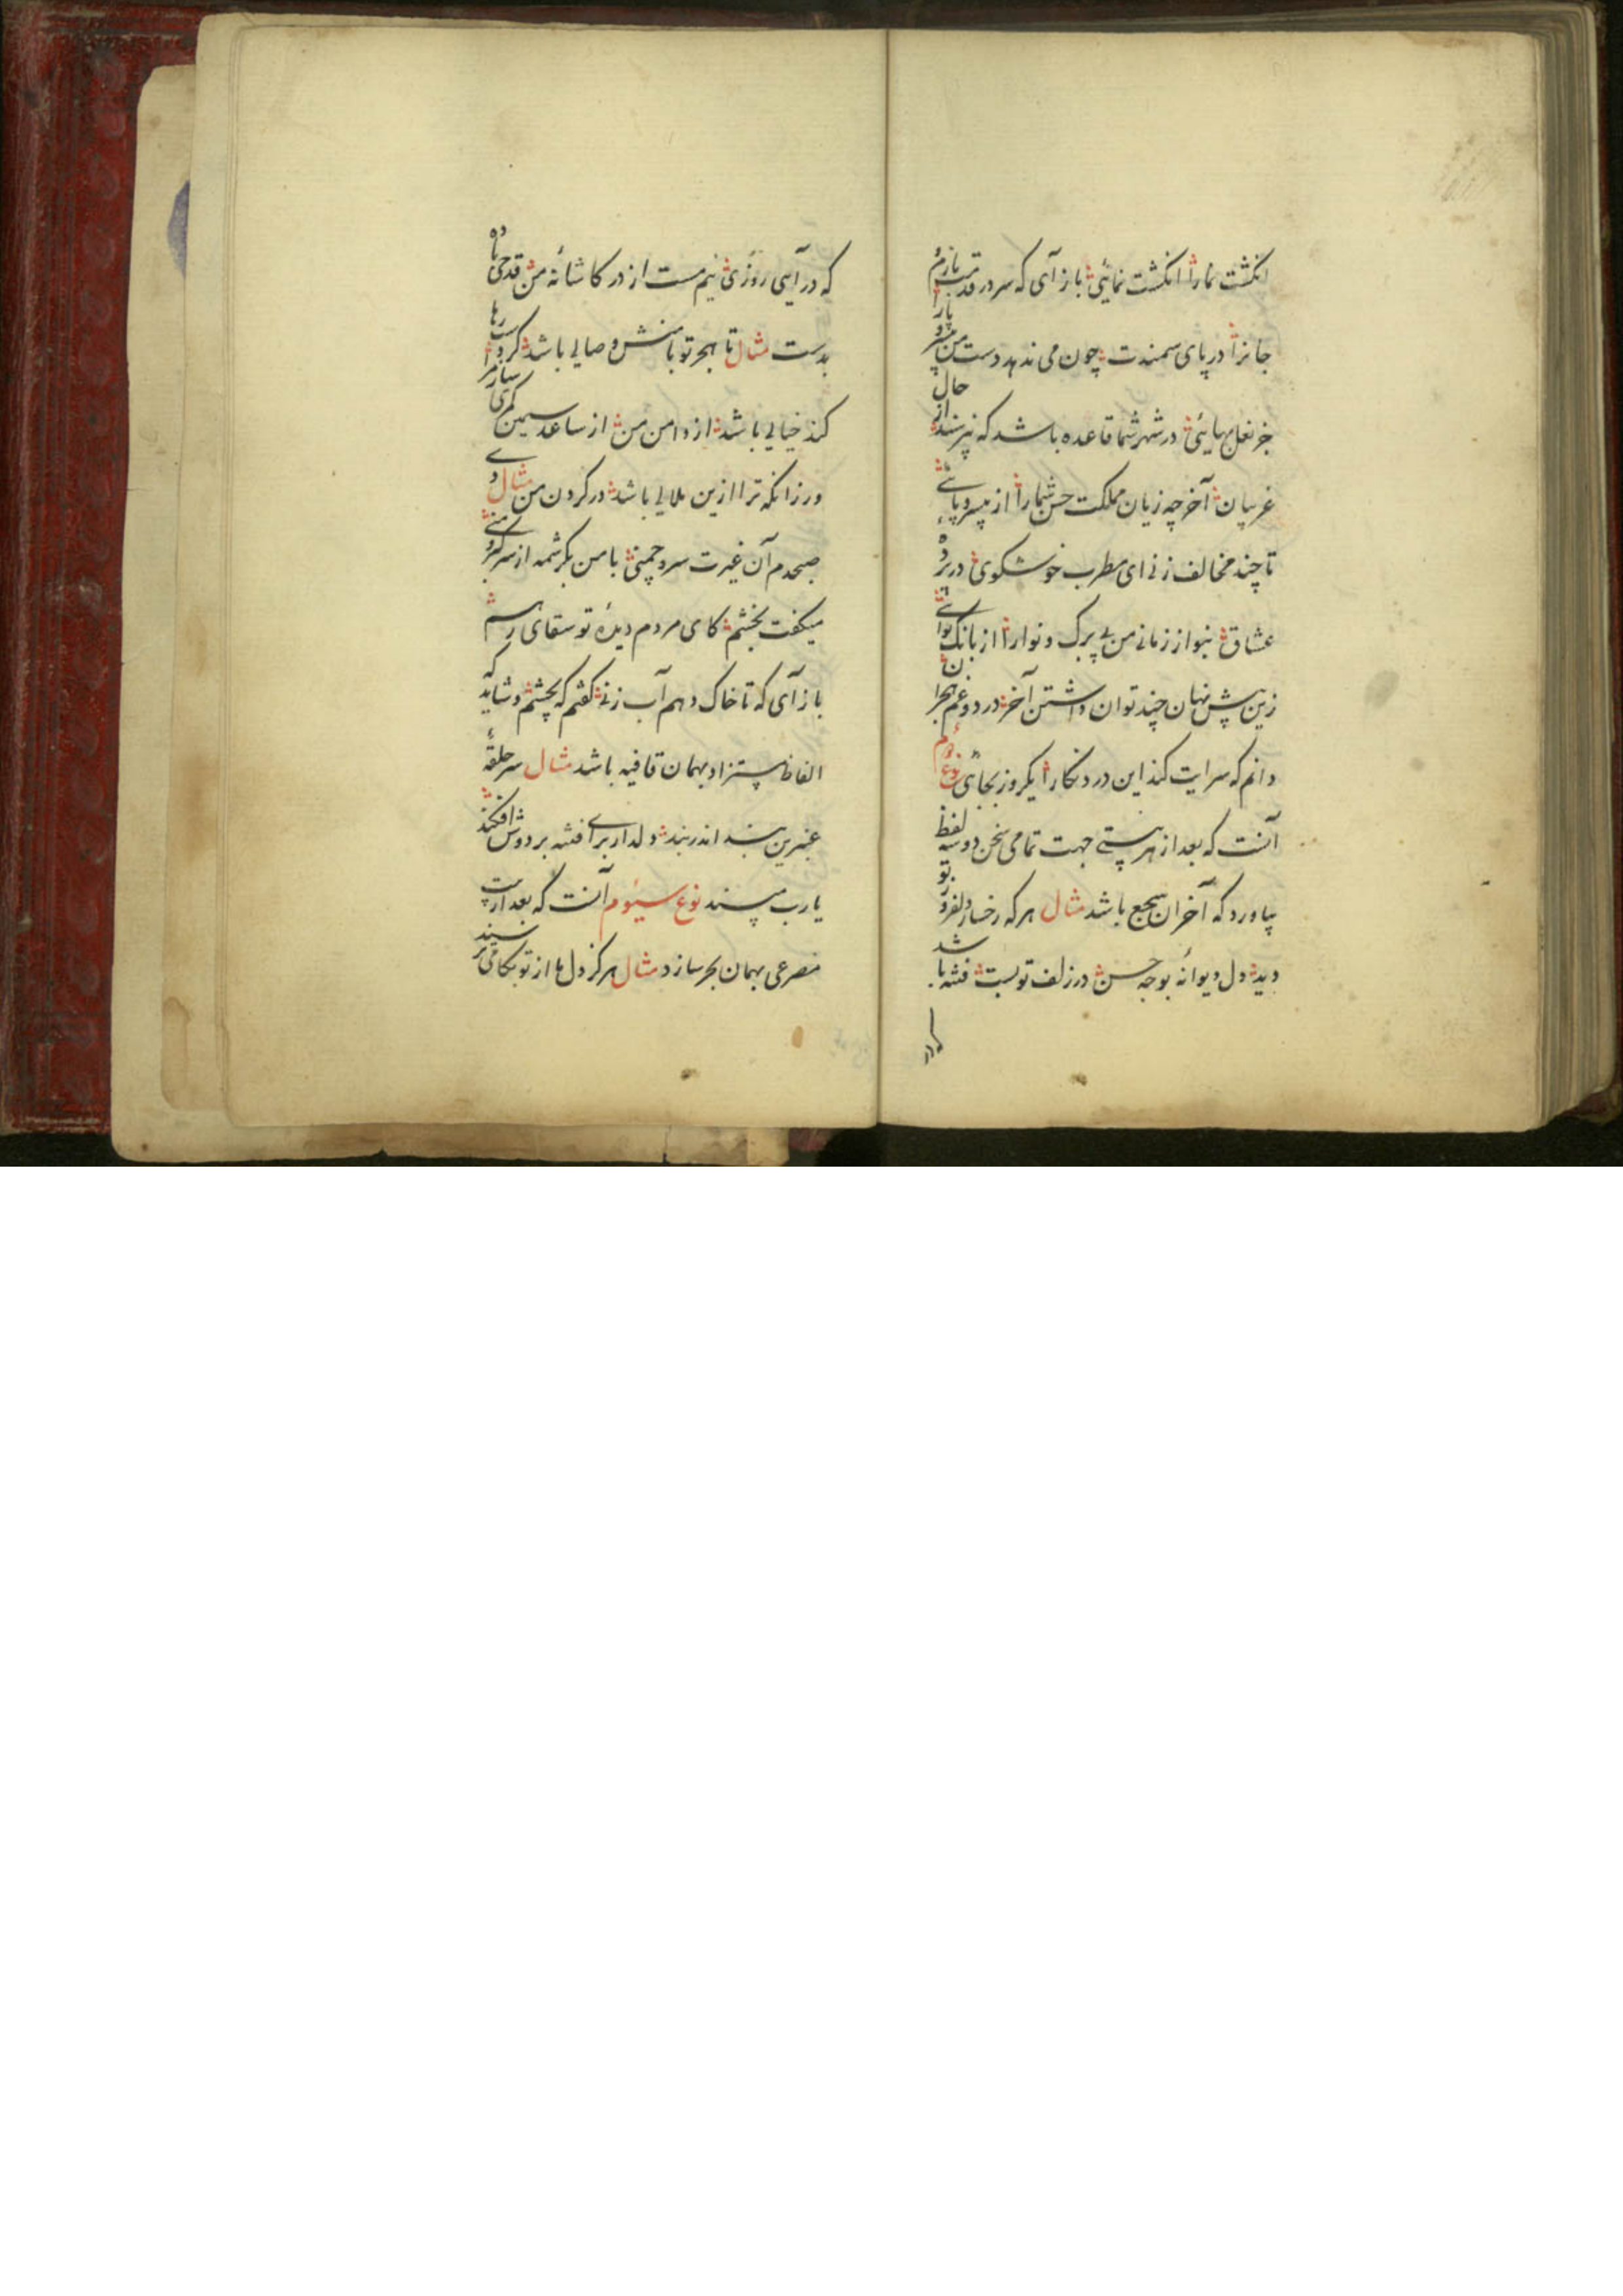 انکشت نما را انکشت نمائی باز آی که سر در قدمت بازم
جانرا در پای سمندت چون می ندهد دست من و پا را
جز نعل بهائی در شهر شما قاعده باشد که نپرسند از حال
غریبان آخر چه زیان مملکت حسن شما را از بی سر و پائی
تا چند مخالف زنی ای مطرب خوشکوی در پرده
عشاق بنواز زمانی من بی برک و نوا را از بانک نوائی
زین پیش نهان چند توان داشتن آخر درد و غم هجران
دانم که سرایت کند این درد نکارا یکروز بجائی نوع دوم
آنست که بعد از هر بیتی جهت تمامی سخن دو سه لفظ
بیاورد که آخر آن سجع باشد مثال هر که رخسار دلفروز تو
دید دل دیوانه بوجه حسن در زلف تو بست فتنه باشد
که در آیی روزی نیم مست از در کاشانه من قدحی باده
بدست مثال تا هجر تو با منش وصالی باشد کردست رها
کند خیالی باشد از دامن من از ساعد سیمین کمری ساز مرا
ور زانکه ترا ازین ملالی باشد در کردن من مثال دی
صبحدم آن غیرت سرو چمنی با من بکرشمه از سر کبر و منی
میکفت بخشم کای مردم دیدهٔ تو سقای رهم
باز آی که تا خاک دهم آب زنی کفتم که بچشم و شاید که
الفاظ مستزاد بهمان قافیه باشد مثال سر حلقهٔ
عنبرین بند اندر بند دلدار برای فتنه بر دوش افکند
یا رب مپسند نوع سیوم آنست که بعد از بیت
مصرعی بهمان بحر سازد مثال هرکز دلها از تو بکامی نرسند